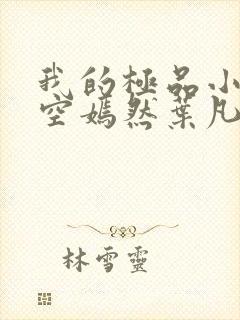 我的極品小
空嫣然葉凡
林雪靈